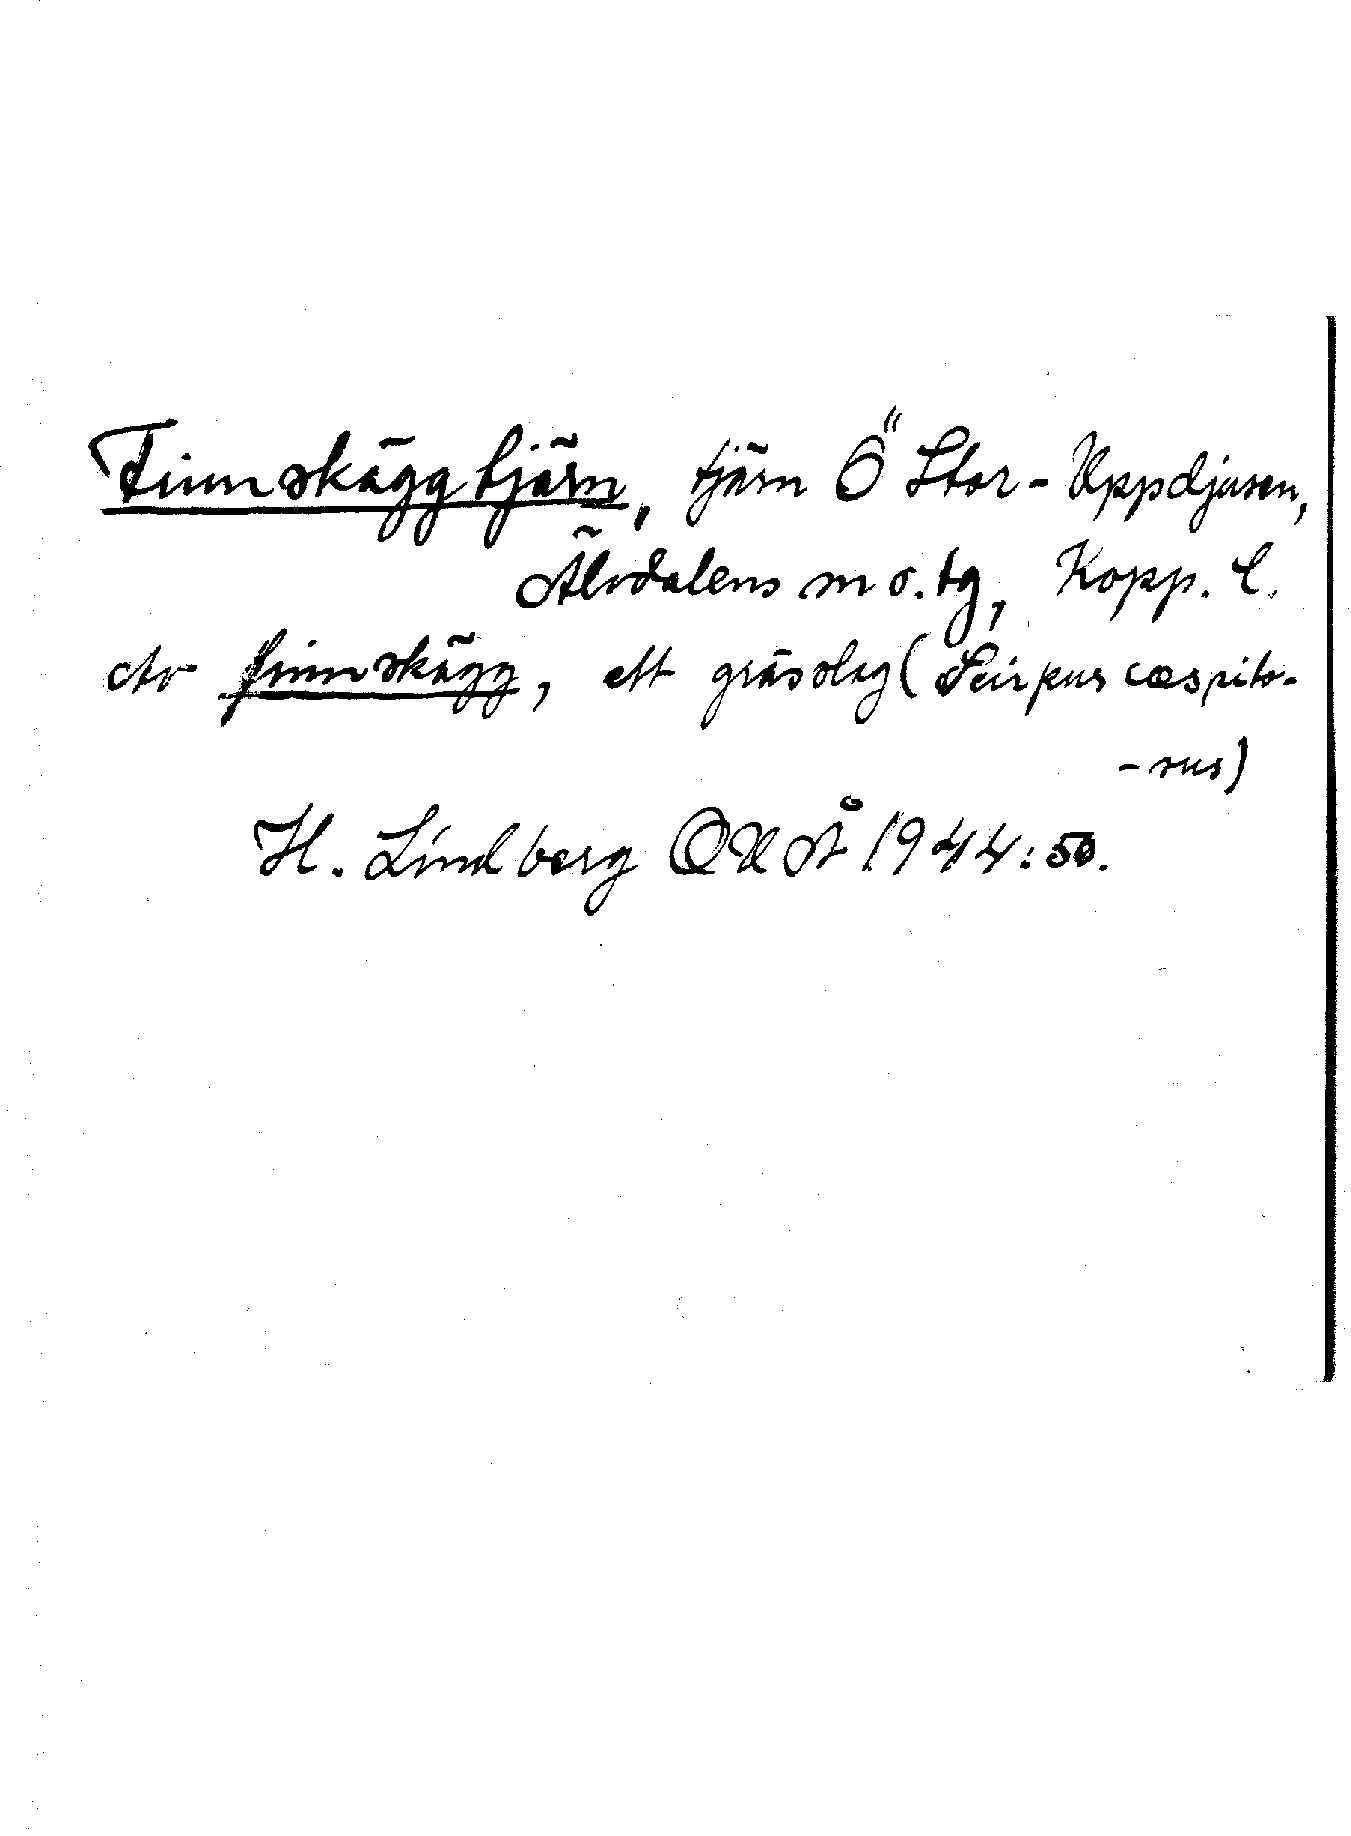 Finnskäggtjärn, tjärn Ö Stor-Uppdjusen,
Älvdalens m o. tg, Kopp. l.
Av finnskägg, ett grässlag (Scirpus cæspito-
-sus)
H. Lindberg OUÅ 1944:50.